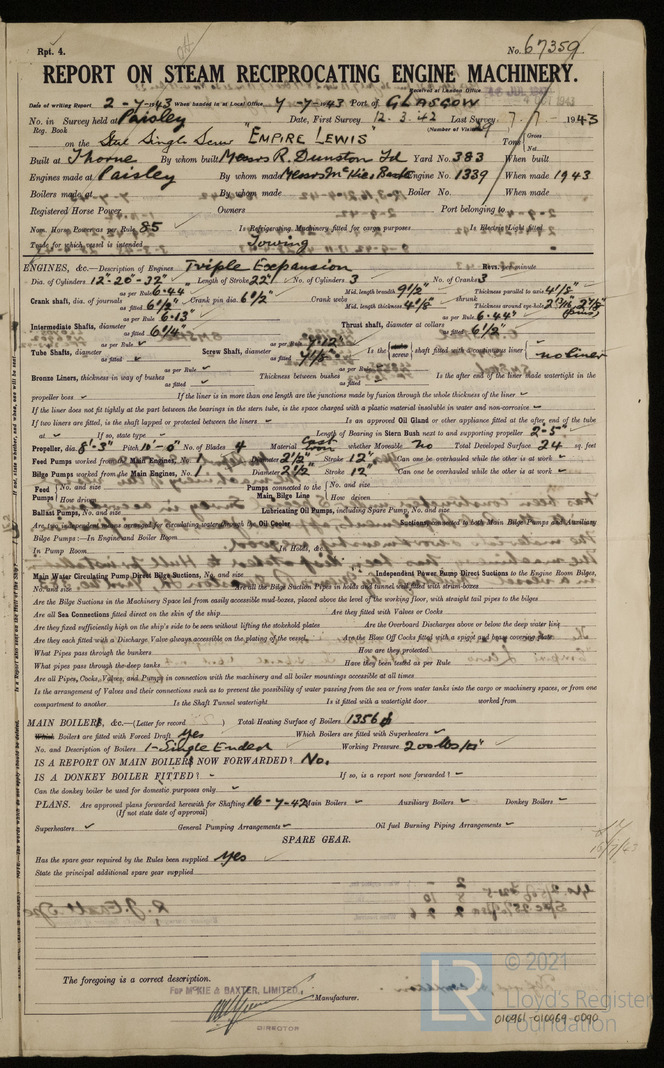 Rpt. 4.
No. 67359
REPORT ON STEAM RECIPROCATING ENGINE MACHINERY.
Received at London Office
Date of writing Report 2-7-1943 When handed in at Local Office 7-7-1943 Port of GLASGOW
No. in Survey held at Paisley Date, First Survey 12.3.42 Last Survey 7/7 1943
Reg. Book (Number of Visits 29)
on the Steel Single Screw "EMPIRE LEWIS" Tons Gross Net
Built at Thorne By whom built Messrs R. Dunston Ld Yard No. 383 When built
Engines made at Paisley By whom made Messrs McKie & Baxter Engine No. 1339 When made 1943
Boilers made at By whom made Boiler No. When made
Registered Horse Power Owners Port belonging to
Nom. Horse Power as per Rule 85 Is Refrigerating Machinery fitted for cargo purposes Is Electric Light fitted
Trade for which vessel is intended Towing
ENGINES, &c.—Description of Engines Triple Expansion Revs. per minute
Dia. of Cylinders 12-20-32" Length of Stroke 22" No. of Cylinders 3 No. of Cranks 3
Crank shaft, dia. of journals as per Rule 6.44 as fitted 6 1/2" Crank pin dia. 6 1/2" Crank webs Mid. length breadth 9 1/2" Mid. length thickness 4 1/8" shrunk Thickness parallel to axis 4 1/8" Thickness around eye-hole 2 13/16" 2 7/8" (pins)
Intermediate Shafts, diameter as per Rule 6.13" as fitted 6 1/4" Thrust shaft, diameter at collars as per Rule 6.44" as fitted 6 1/2"
Tube Shafts, diameter as per Rule as fitted Screw Shaft, diameter as per Rule 7.12" as fitted 7 1/8" Is the screw shaft fitted with a continuous liner no liner
Bronze Liners, thickness in way of bushes as per Rule as fitted Thickness between bushes as per Rule as fitted Is the after end of the liner made watertight in the
propeller boss If the liner is in more than one length are the junctions made by fusion through the whole thickness of the liner
If the liner does not fit tightly at the part between the bearings in the stern tube, is the space charged with a plastic material insoluble in water and non-corrosive
If two liners are fitted, is the shaft lapped or protected between the liners Is an approved Oil Gland or other appliance fitted at the after end of the tube
at If so, state type Length of Bearing in Stern Bush next to and supporting propeller 2-5"
Propeller, dia. 8'-3" Pitch 10'-0" No. of Blades 4 Material Cast Iron whether Moveable No Total Developed Surface 24 sq. feet
Feed Pumps worked from the Main Engines, No. 1 Diameter 2 1/2" Stroke 12" Can one be overhauled while the other is at work
Bilge Pumps worked from the Main Engines, No. 1 Diameter 2 1/2" Stroke 12" Can one be overhauled while the other is at work
Feed Pumps No. and size How driven Pumps connected to the Main Bilge Line No. and size How driven
Ballast Pumps, No. and size Lubricating Oil Pumps, including Spare Pump, No. and size
Are two independent means arranged for circulating water through the Oil Cooler Suctions, connected to both Main Bilge Pumps and Auxiliary
Bilge Pumps:—In Engine and Boiler Room
In Pump Room In Holds, &c.
Main Water Circulating Pump Direct Bilge Suctions, No. and size Independent Power Pump Direct Suctions to the Engine Room Bilges,
No. and size Are all the Bilge Suction Pipes in holds and tunnel well fitted with strum-boxes
Are the Bilge Suctions in the Machinery Space led from easily accessible mud-boxes, placed above the level of the working floor, with straight tail pipes to the bilges
Are all Sea Connections fitted direct on the skin of the ship Are they fitted with Valves or Cocks
Are they fixed sufficiently high on the ship's side to be seen without lifting the stokehold plates Are the Overboard Discharges above or below the deep water line
Are they each fitted with a Discharge Valve always accessible on the plating of the vessel Are the Blow Off Cocks fitted with a spigot and brass covering plate
What Pipes pass through the bunkers How are they protected
What pipes pass through the deep tanks Have they been tested as per Rule
Are all Pipes, Cocks, Valves, and Pumps in connection with the machinery and all boiler mountings accessible at all times
Is the arrangement of Valves and their connections such as to prevent the possibility of water passing from the sea or from water tanks into the cargo or machinery spaces, or from one
compartment to another Is the Shaft Tunnel watertight Is it fitted with a watertight door worked from
MAIN BOILERS, &c.—(Letter for record ) Total Heating Surface of Boilers 1356
Which Boilers are fitted with Forced Draft Yes Which Boilers are fitted with Superheaters
No. and Description of Boilers 1-Single Ended Working Pressure 200 lbs/□"
IS A REPORT ON MAIN BOILERS NOW FORWARDED? No.
IS A DONKEY BOILER FITTED? If so, is a report now forwarded?
Can the donkey boiler be used for domestic purposes only
PLANS. Are approved plans forwarded herewith for Shafting 16-7-42 Main Boilers Auxiliary Boilers Donkey Boilers
(If not state date of approval)
Superheaters General Pumping Arrangements Oil fuel Burning Piping Arrangements
SPARE GEAR.
Has the spare gear required by the Rules been supplied Yes
State the principal additional spare gear supplied
The foregoing is a correct description.
FOR McKIE & BAXTER, LIMITED,
Manufacturer.
DIRECTOR
LR © 2021
Lloyd's Register
Foundation
010961-010969-0090